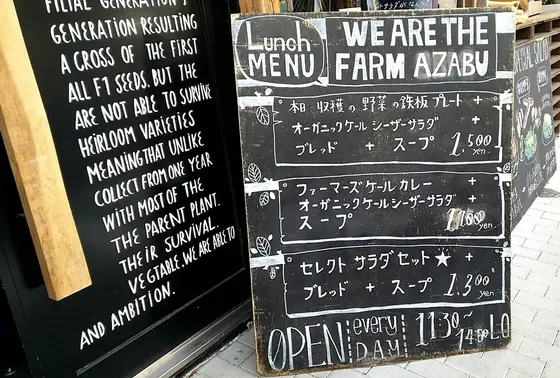 FILIAL GENERATION,
GENERATION RESULTING
A CROSS OF THE FIRST
ALL F1 SEEDS. BUT THE
ARE NOT ABLE TO SURVIVE
HEIRLOOM VARIETIES
MEANING THAT UNLIKE
COLLECT FROM ONE YEAR
WITH MOST OF THE
THE PARENT PLANT.
THEIR SURVIVAL.
VEGTABLE. WE ARE ABLE TO
AND AMBITION.
Lunch
MENU
WE ARE THE
FARM AZABU
収穫の野菜の鉄板プレート +
オーガニックケールシーザーサラダ +
ブレッド + スープ 1,500 yen
ファーマーズケールカレー +
オーガニックケールシーザーサラダ +
スープ yen
セレクトサラダセット★ +
ブレッド + スープ 1,300 yen
OPEN every DAY 11:30~
LO